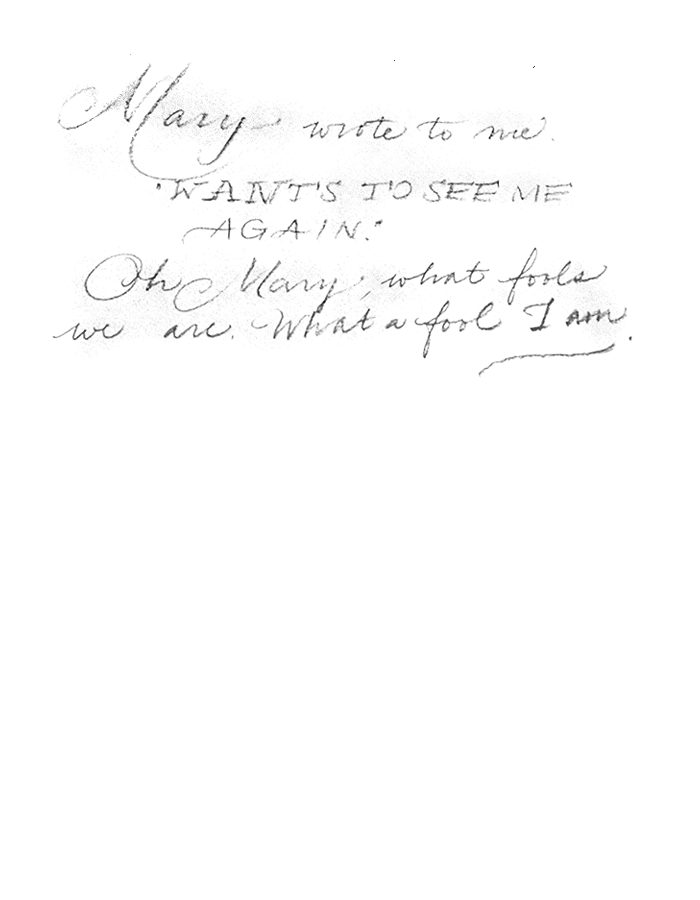 Mary wrote to me.
"WANT'S TO SEE ME
AGAIN."
Oh Mary, what fools
we are. What a fool I am.